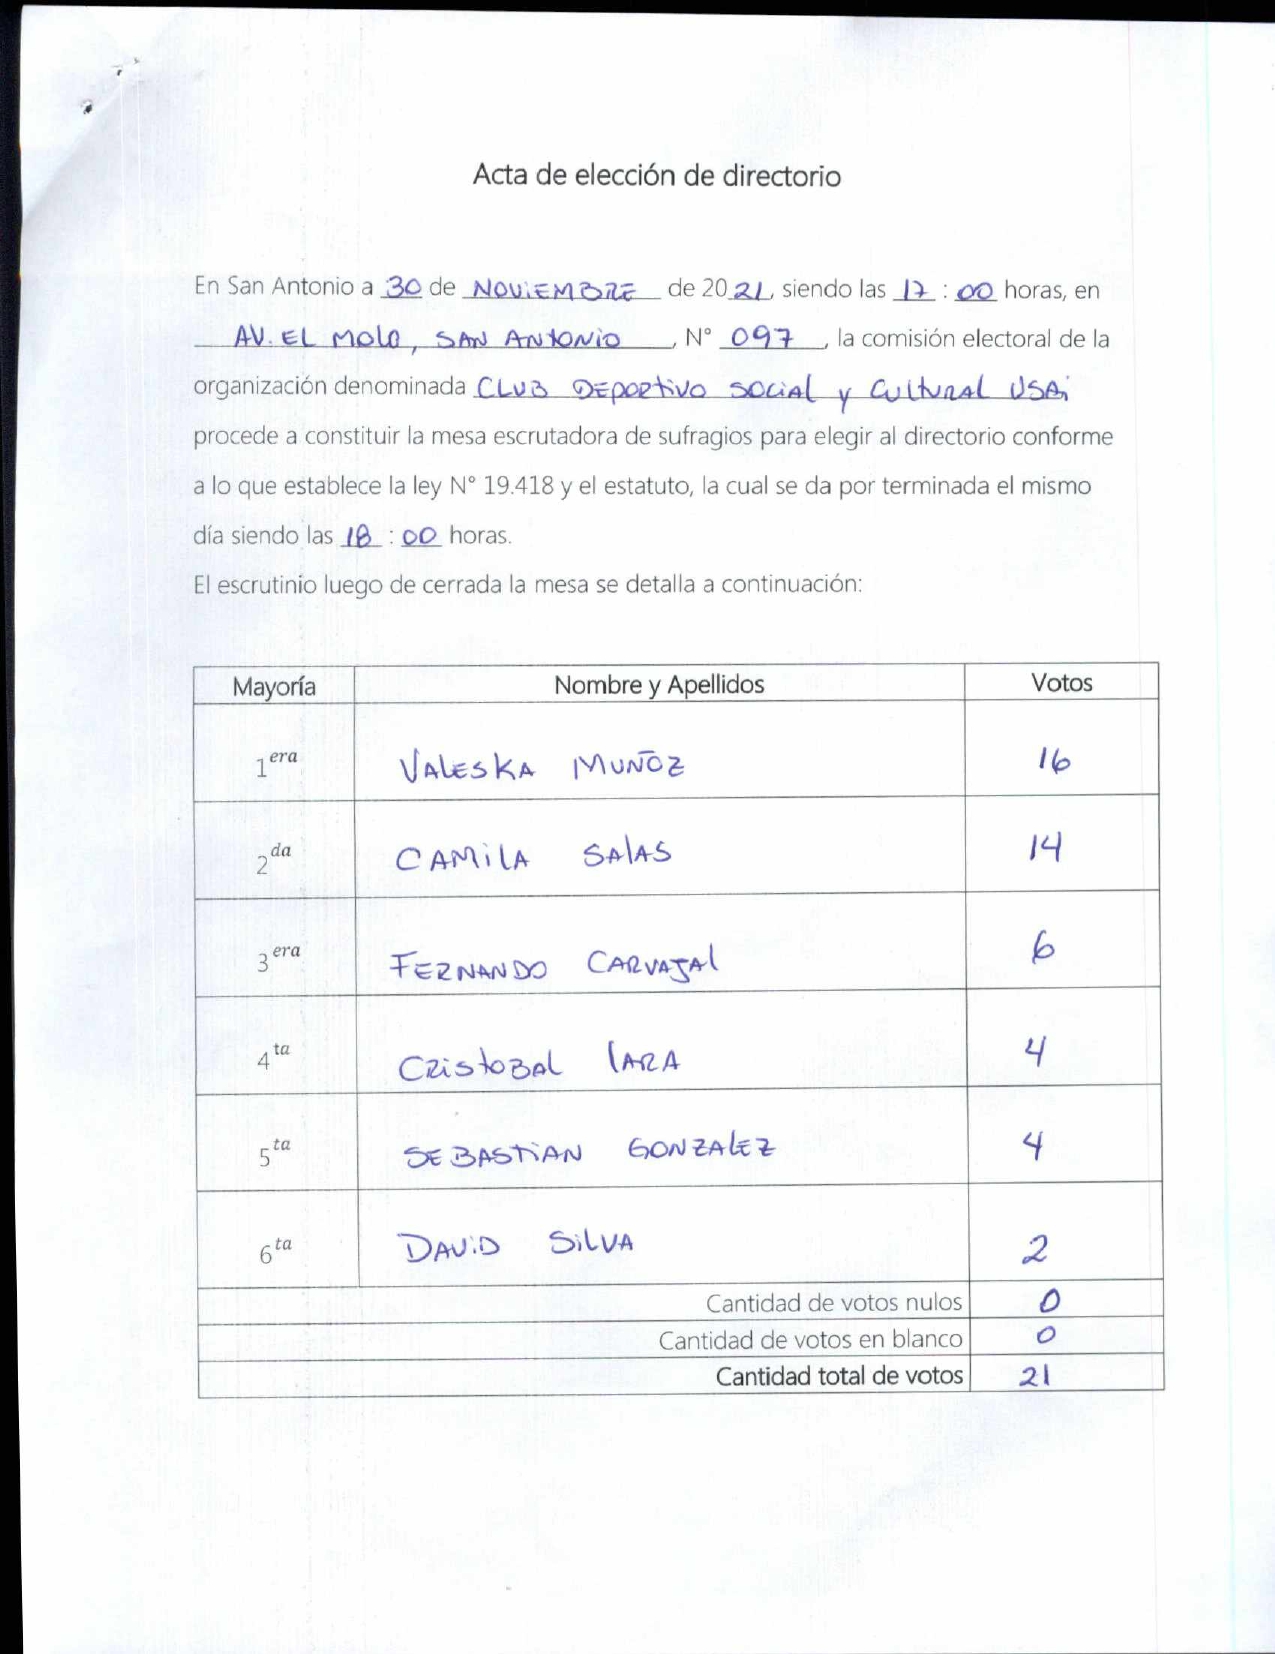 Acta de elección de directorio
En San Antonio a 30 de NOViEMBRE de 2021, siendo las 17 : 00 horas, en
AV. EL MOLO, SAN ANtONiO, N° 097, la comisión electoral de la
organización denominada CLUB DEPORtiVO SOCiAL y CULtURAL USAi
procede a constituir la mesa escrutadora de sufragios para elegir al directorio conforme
a lo que establece la ley N° 19.418 y el estatuto, la cual se da por terminada el mismo
día siendo las 18 : 00 horas.
El escrutinio luego de cerrada la mesa se detalla a continuación:
Mayoría Nombre y Apellidos Votos
1era VALESKA MUÑOZ 16
2da CAMiLA SALAS 14
3era FERNANDO CARVAJAL 6
4ta CRiStOBAL LARA 4
5ta SEBAStiAN GONZALEZ 4
6ta DAViD SiLVA 2
Cantidad de votos nulos 0
Cantidad de votos en blanco 0
Cantidad total de votos 21